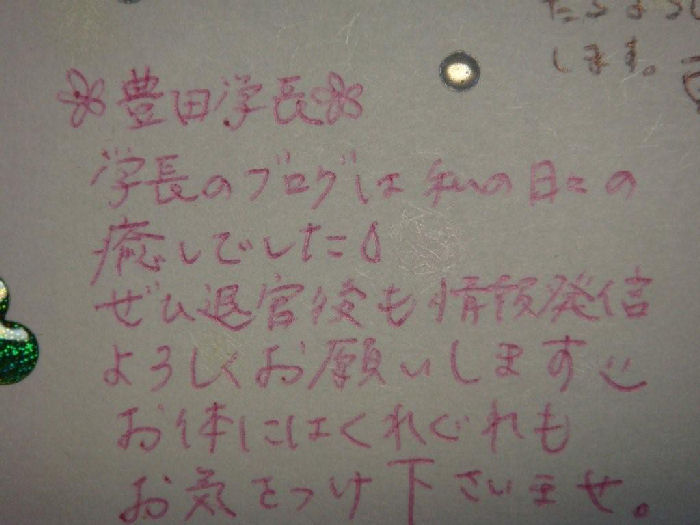 たらよろし
します。
豊田学長
学長のブログは私の日々の
癒しでした
ぜひ退官後も情報発信
よろしくお願いします
お体にはくれぐれも
お気をつけ下さいませ。